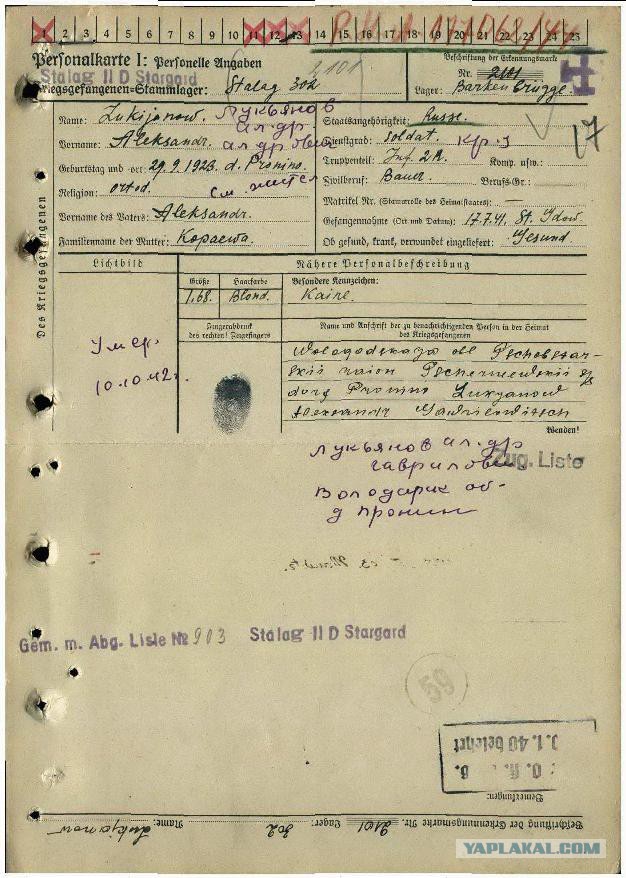 1 2 3 4 5 6 7 8 9 10 11 12 13 14 15 16 17 18 19 20 21 22 23 24 25
Personalkarte I: Personelle Angaben
2101
Beschriftung der Erkennungsmarke
Stalag II D Stargard
Nr. 2101
Kriegsgefangenen-Stammlager: Stalag 302
Lager: Barkenbrügge
Des Kriegsgefangenen
Name: Lukijanow. Лукьянов
Staatsangehörigkeit: Russe.
17
Vorname: Aleksandr. ал.др
Dienstgrad: Soldat.
Geburtstag und -ort: 29.9.1923. d. Pronino.
Truppenteil: Inf. 2R. Komp. usw.:
Religion: ortod.
Zivilberuf: Bauer. Berufs-Gr.:
Matrikel Nr. (Stammrolle des Heimatstaates): —
Vorname des Vaters: Aleksandr.
Gefangennahme (Ort und Datum): 17.7.41.
Familienname der Mutter: Kopaewa.
Ob gesund, krank, verwundet eingeliefert: Gesund.
Lichtbild
Nähere Personalbeschreibung
Größe Haarfarbe Besondere Kennzeichen:
1,68. Blond. Kaine.
Fingerabdruck
des rechten! Zeigefingers
Name und Anschrift der zu benachrichtigenden Person in der Heimat
des Kriegsgefangenen
Умер.
10.10.42г.
Wologodskaja obl
raion
dorf Pronino Lukyanow
Alexandr Gawrilowitsch
Wenden!
Лукьянов ал.др
гаврилови
Zug. Liste
об-
д Пронин
Gem. m. Abg. Liste № 903 Stalag II D Stargard
59
0.1.40 belehrt
Bemerkungen:
Beschriftung der Erkennungsmarke Nr. 2101 Lager: 302 Name: Lukijanow
YAPLAKAL.COM